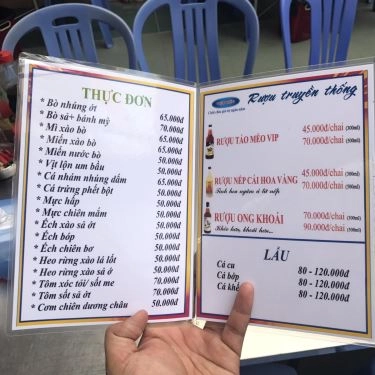 THỰC ĐƠN
* Bò nhúng ớt 65.000đ
* Bò sả+ bánh mỳ 70.000đ
* Mì xào bò 65.000đ
* Miến xào bò 65.000đ
* Miến nước bò 50.000đ
* Vịt lộn um bầu 50.000đ
* Cá nhám nhúng dấm 50.000đ
* Cá trứng phết bột 50.000đ
* Mực hấp 50.000đ
* Mực chiên mắm 50.000đ
* Ếch xào sả ớt 50.000đ
* Ếch bóp 50.000đ
* Ếch chiên bơ 50.000đ
* Heo rừng xào lá lốt 50.000đ
* Heo rừng xào sả ớt 50.000đ
* Tôm xóc tỏi/ sốt me 70.000đ
* Tôm sốt sả ớt 50.000đ
* Cơm chiên dương châu 50.000đ
Rượu truyền thống
45.000đ/chai (300ml)
RƯỢU TÁO MÈO VIP 70.000đ/chai (500ml)
45.000đ/chai (300ml)
RƯỢU NẾP CÁI HOA VÀNG 70.000đ/chai (500ml)
RƯỢU ONG KHOÁI 70.000đ/chai (300ml)
90.000đ/chai (500ml)
LẨU
Cá cu 80 - 120.000đ
Cá bớp 80 - 120.000đ
80 - 120.000đ